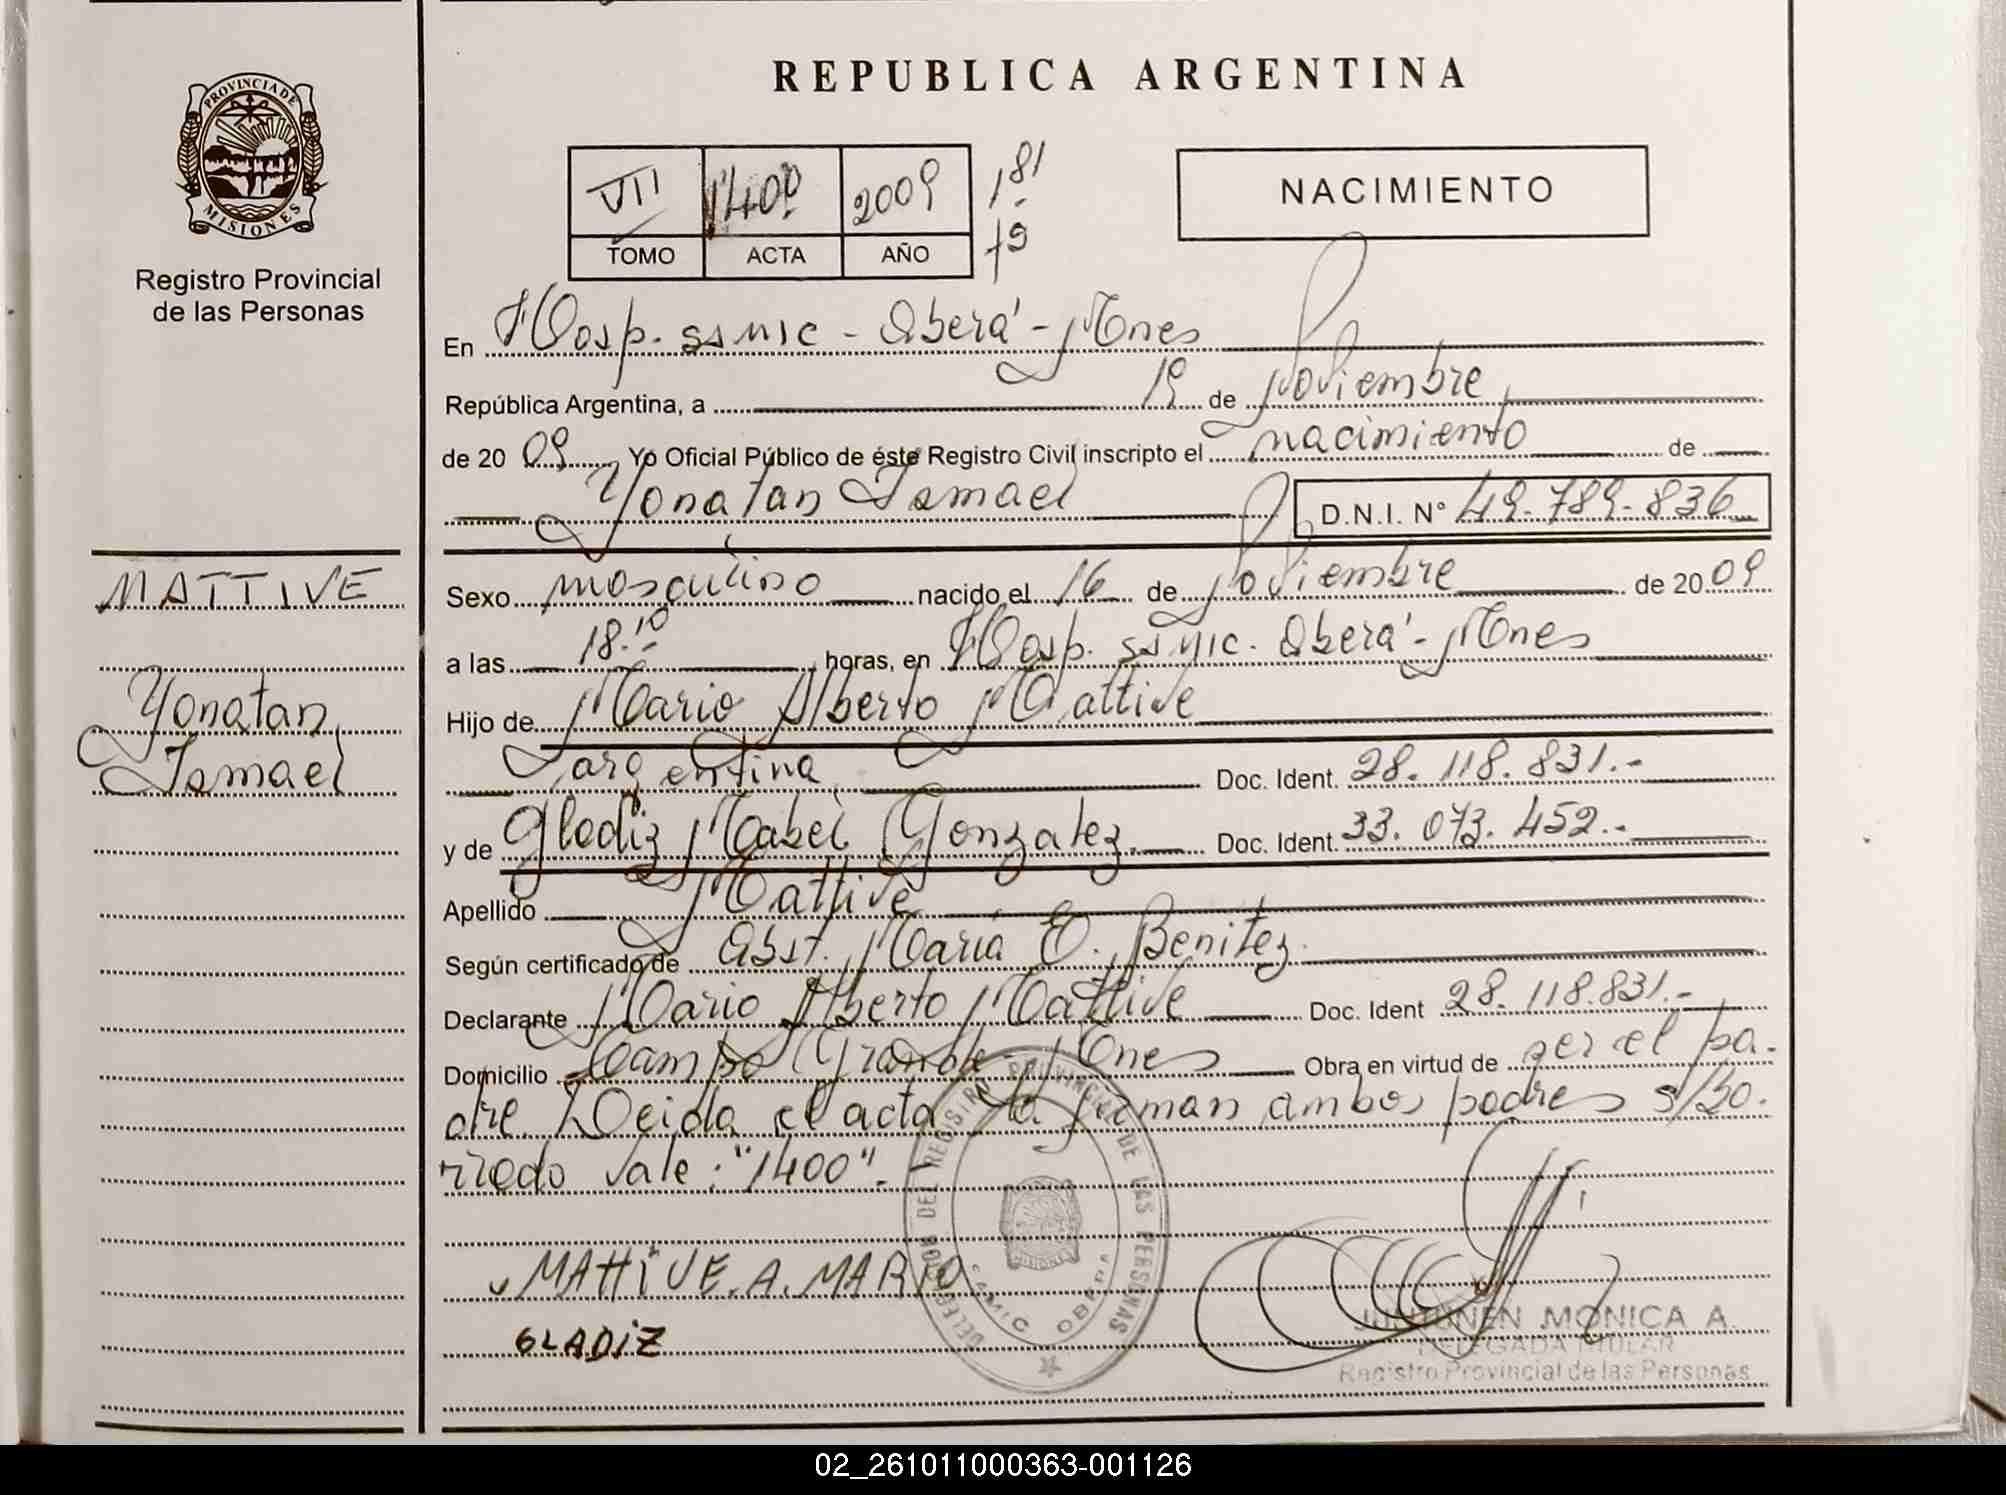 REPUBLICA ARGENTINA
PROVINCIA DE MISIONES
Registro Provincial
de las Personas
VII 1400 2009
TOMO ACTA AÑO
181
19
NACIMIENTO
En Hosp. ssmic - Oberá - Mnes
República Argentina, a 19 de Noviembre
de 2009 Yo Oficial Público de éste Registro Civil inscripto el nacimiento de
Yonatan Ismael D.N.I. N° 49.789.836
MATTIVE
Yonatan
Ismael
Sexo masculino nacido el 16 de Noviembre de 2009
a las 18.10 horas, en Hosp. ssmic. Oberá - Mnes
Hijo de Mario Alberto Mattive
argentina Doc. Ident. 28.118.831.-
y de Gladiz Mabel Gonzalez. Doc. Ident. 33.073.452.-
Apellido Mattive
Según certificado de Obst. María E. Benitez.
Declarante Mario Alberto Mattive Doc. Ident 28.118.831.-
Domicilio Campo Grande - Mnes Obra en virtud de ser el pa-
dre. Leida el acta la firman ambos padres s/bo.
rrado vale: "1400".
MATTIVE. A. MARIO
GLADIZ
DEL REGISTRO PROVINCIAL DE LAS PERSONAS
OBERA
JUNTUNEN MONICA A.
DELEGADA TITULAR
Registro Provincial de las Personas
02_261011000363-001126